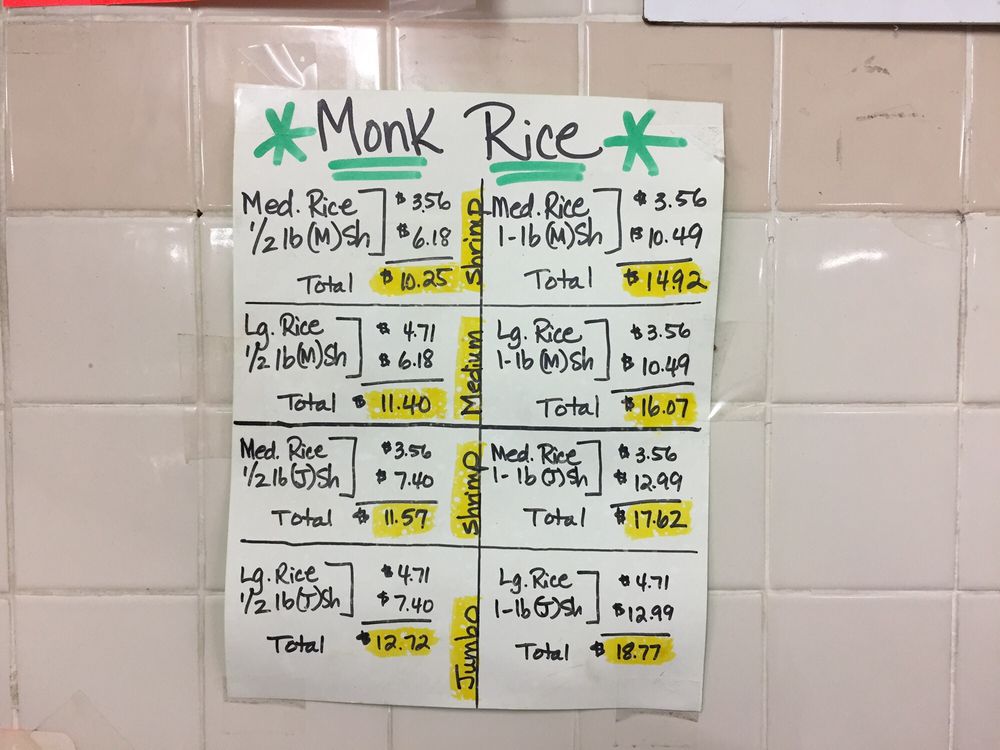 * Monk Rice *
Med. Rice $3.56
1/2 lb (M) Sh $6.18
Total $10.25
Med. Rice $3.56
1-lb (M) Sh $10.49
Total $14.92
Lg. Rice $4.71
1/2 lb (M) Sh $6.18
Total $11.40
Lg. Rice $3.56
1-lb (M) Sh $10.49
Total $16.07
Medium Shrimp
Med. Rice $3.56
1/2 lb (J) Sh $7.40
Total $11.57
Med. Rice $3.56
1-lb (J) Sh $12.99
Total $17.62
Lg. Rice $4.71
1/2 lb (J) Sh $7.40
Total $12.72
Lg. Rice $4.71
1-lb (J) Sh $12.99
Total $18.77
Jumbo Shrimp